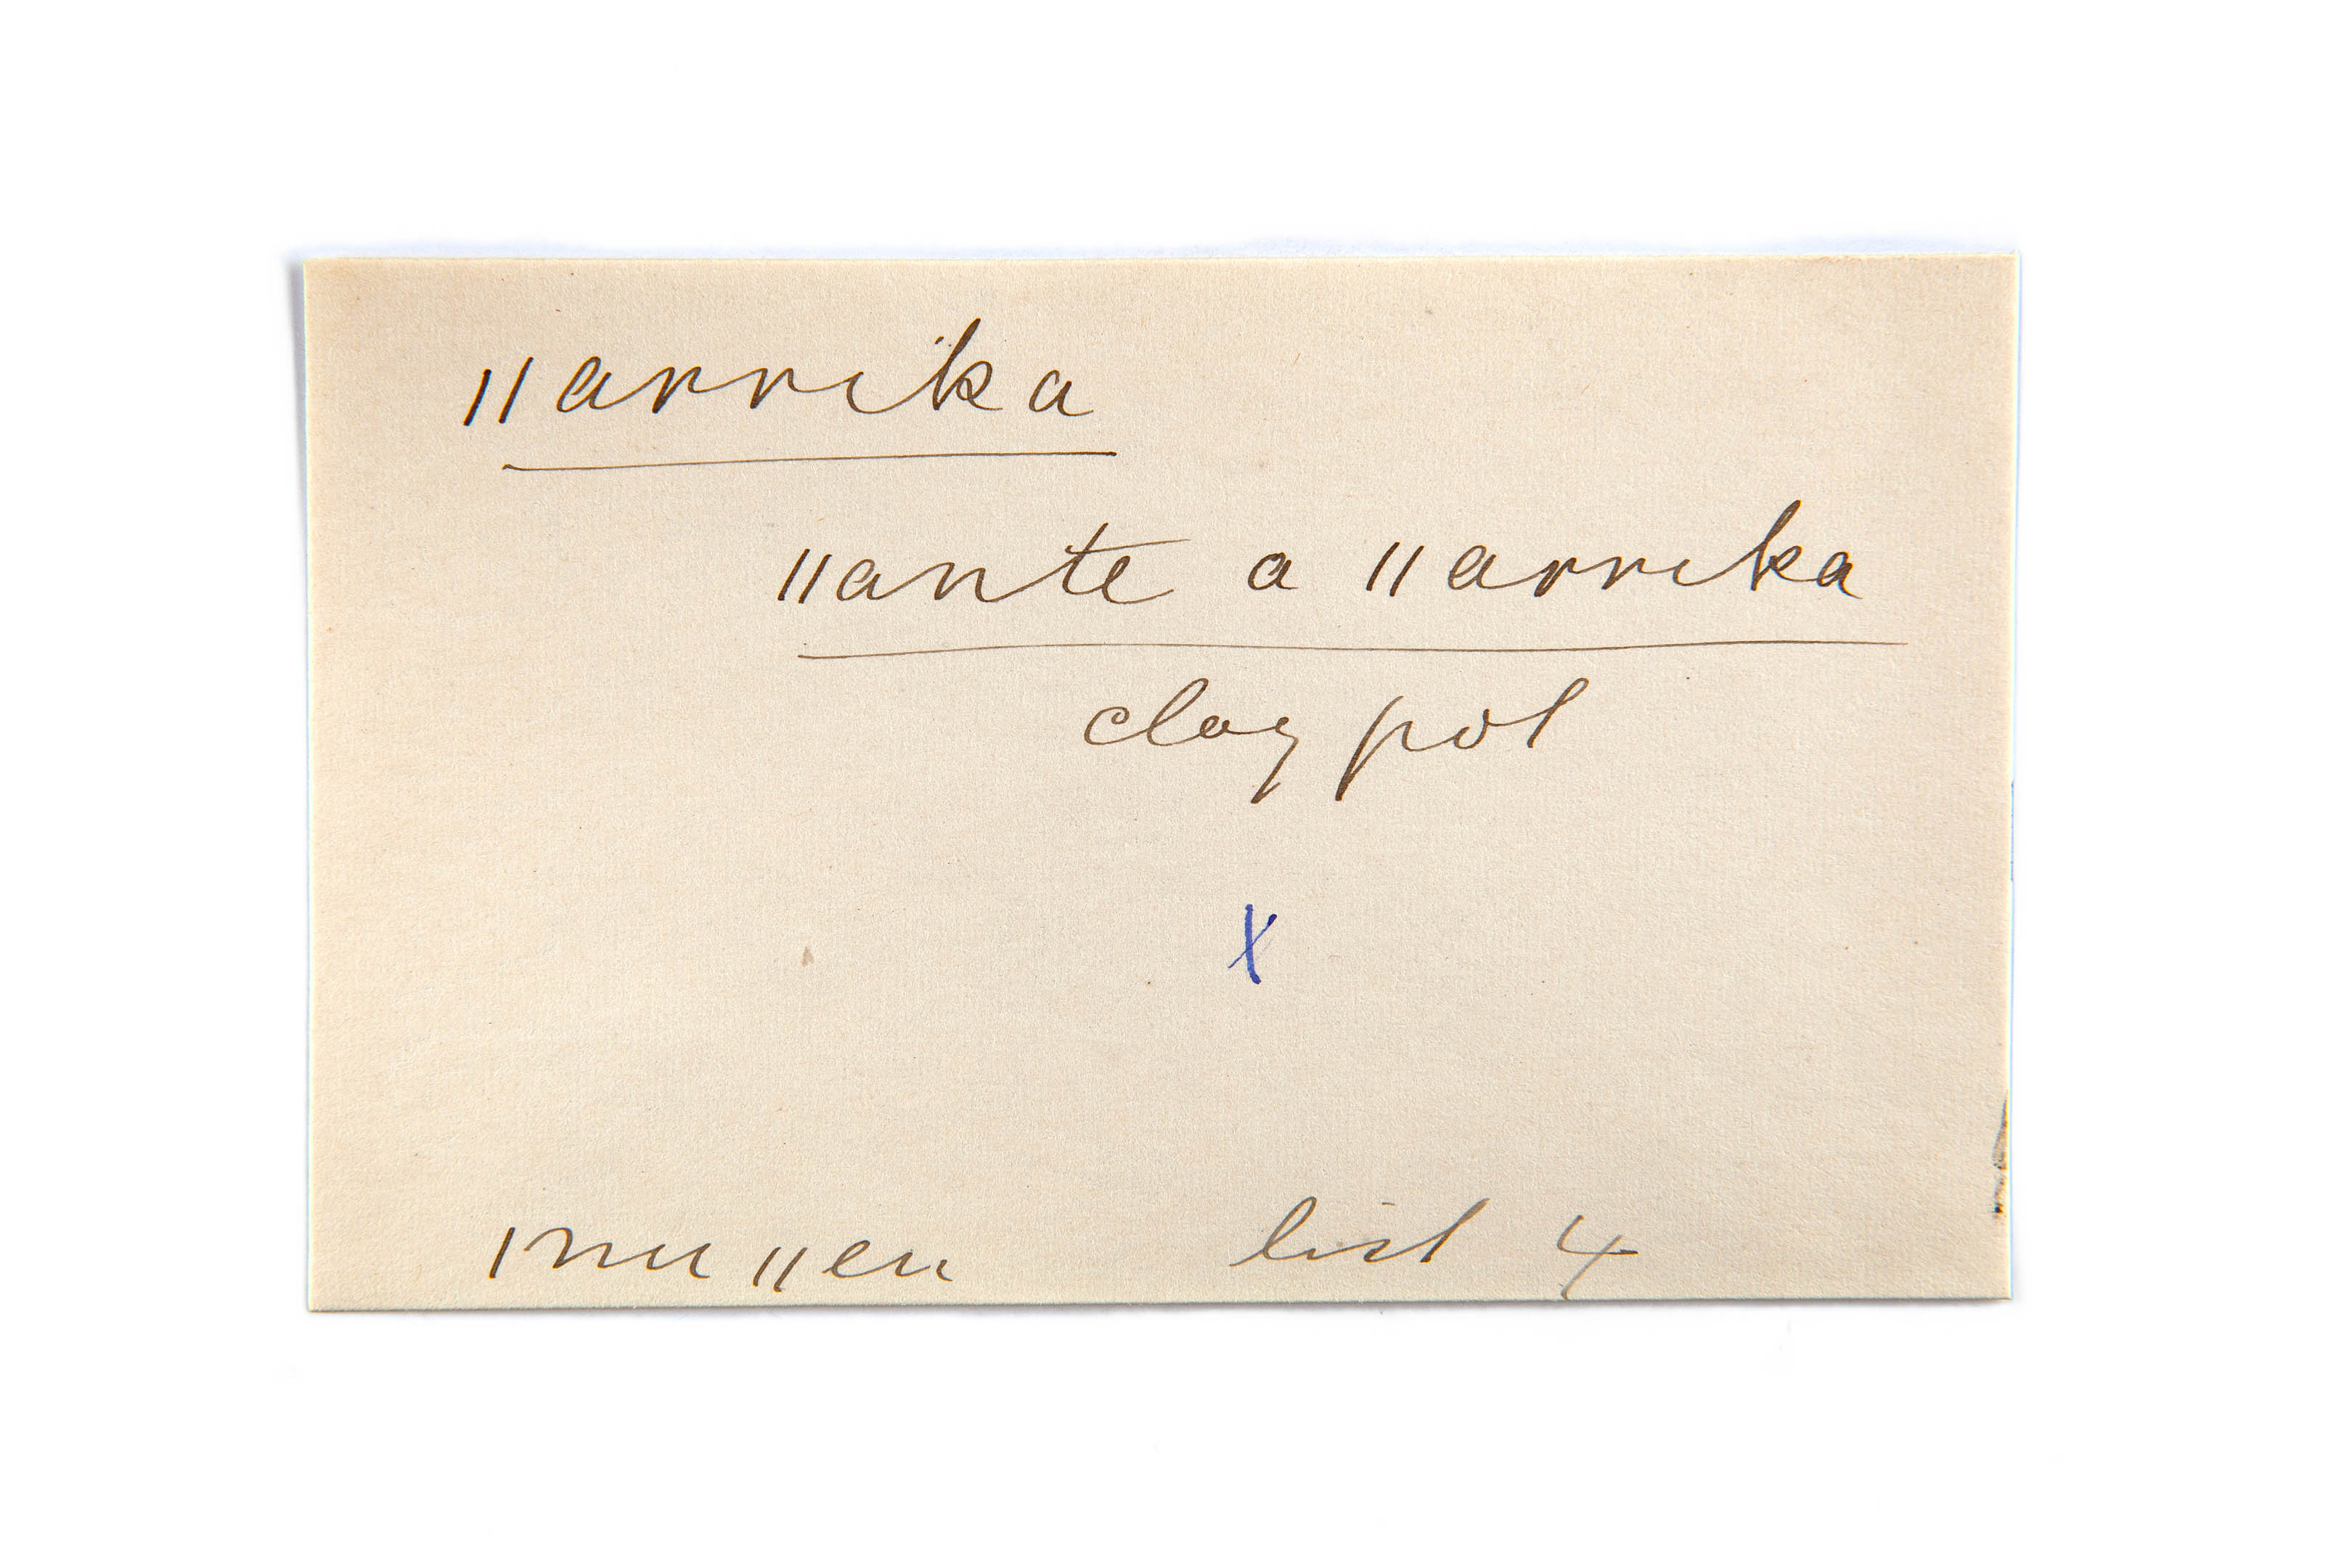 ǁarrika
ǁante a ǁarrika
clay pot
X
ǀnuǁen list 4